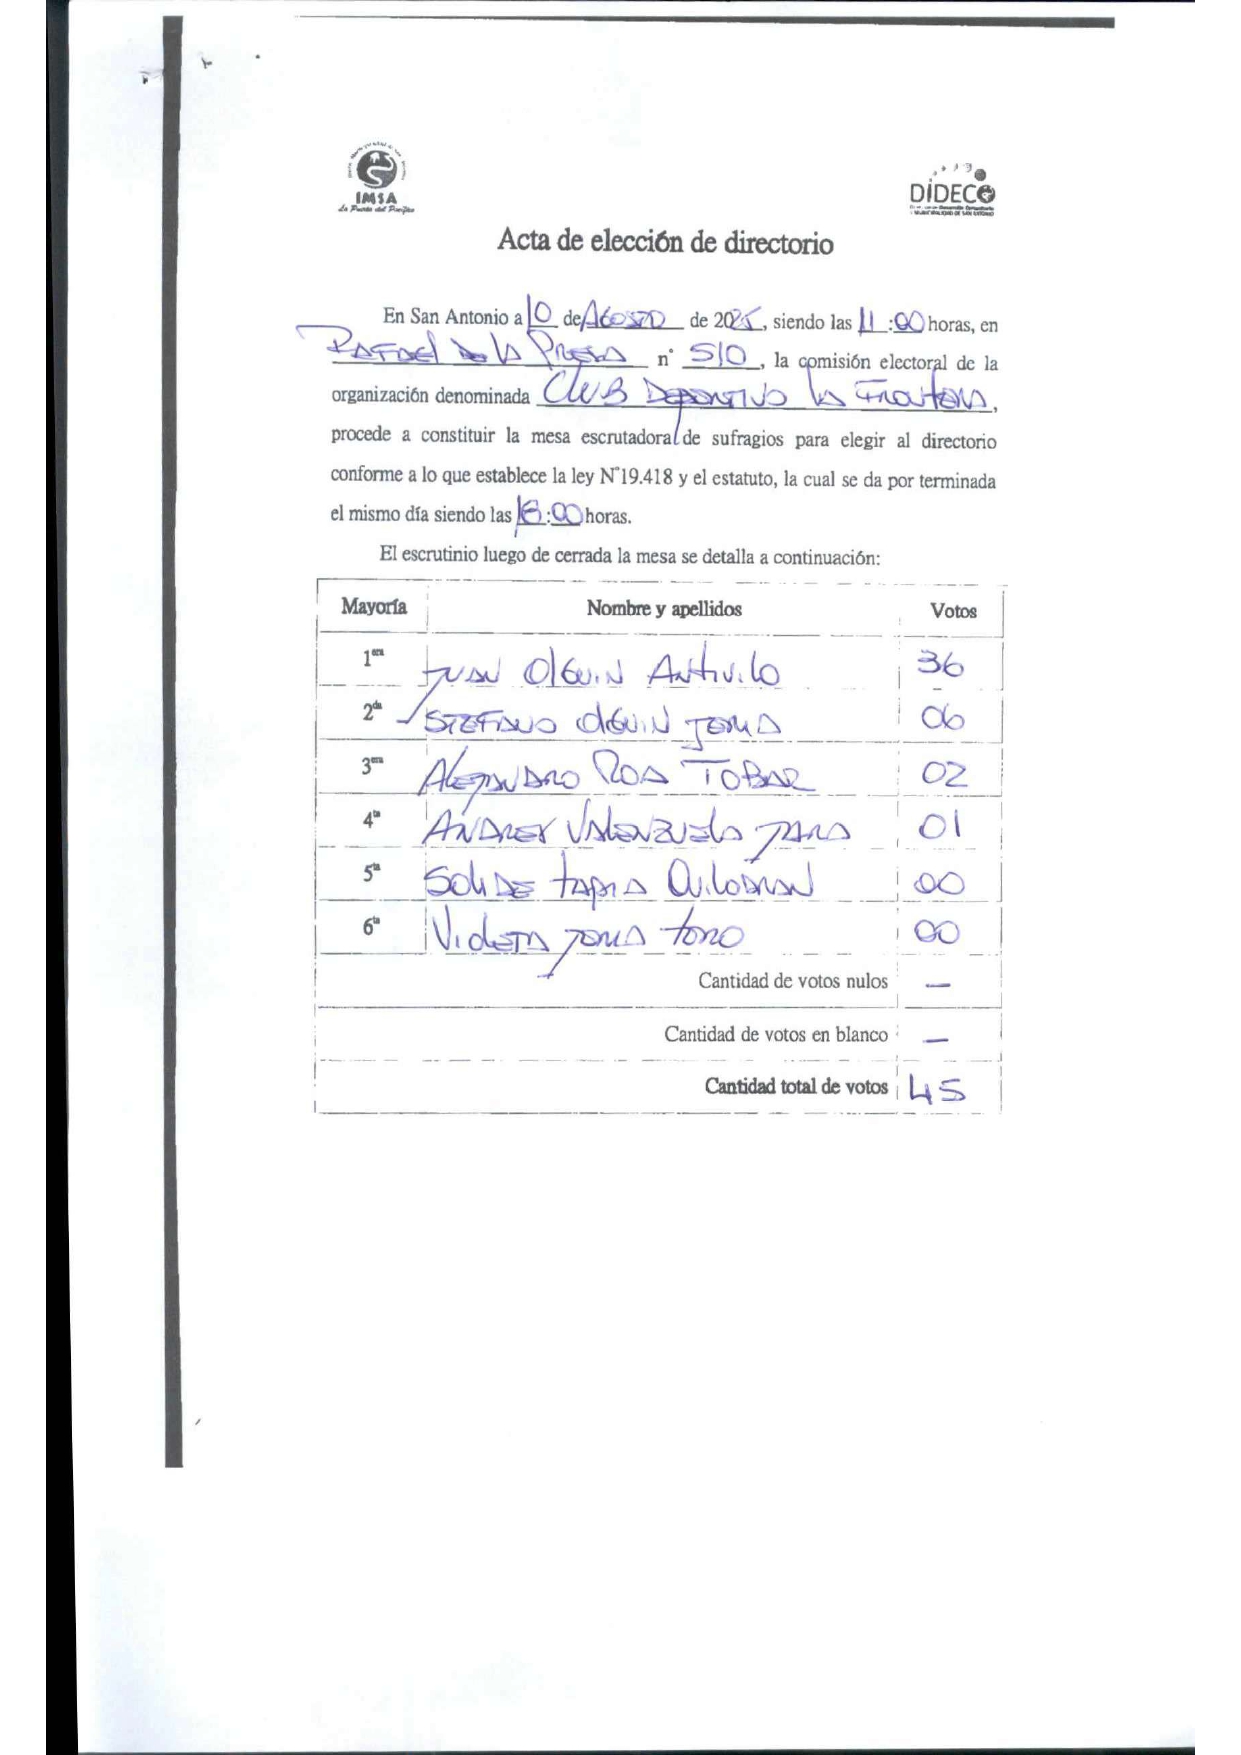 IMSA
La Puerta del Pacífico
DIDECO
Acta de elección de directorio
En San Antonio a 10 de Agosto de 2025, siendo las 11:00 horas, en
Rafael de la Presa n° S/O, la comisión electoral de la
organización denominada Club Deportivo La Frontera,
procede a constituir la mesa escrutadora de sufragios para elegir al directorio
conforme a lo que establece la ley N°19.418 y el estatuto, la cual se da por terminada
el mismo día siendo las 18:00 horas.
El escrutinio luego de cerrada la mesa se detalla a continuación:
Mayoría Nombre y apellidos Votos
1era Juan Olguin Antivilo 36
2da Stefano Olguin Joma 06
3era Alejandro Roa Tobar 02
4ta Andres Valenzuela Jara 01
5ta Solide Tapia Quilodran 00
6ta Violeta Joma Toro 00
Cantidad de votos nulos —
Cantidad de votos en blanco —
Cantidad total de votos 45